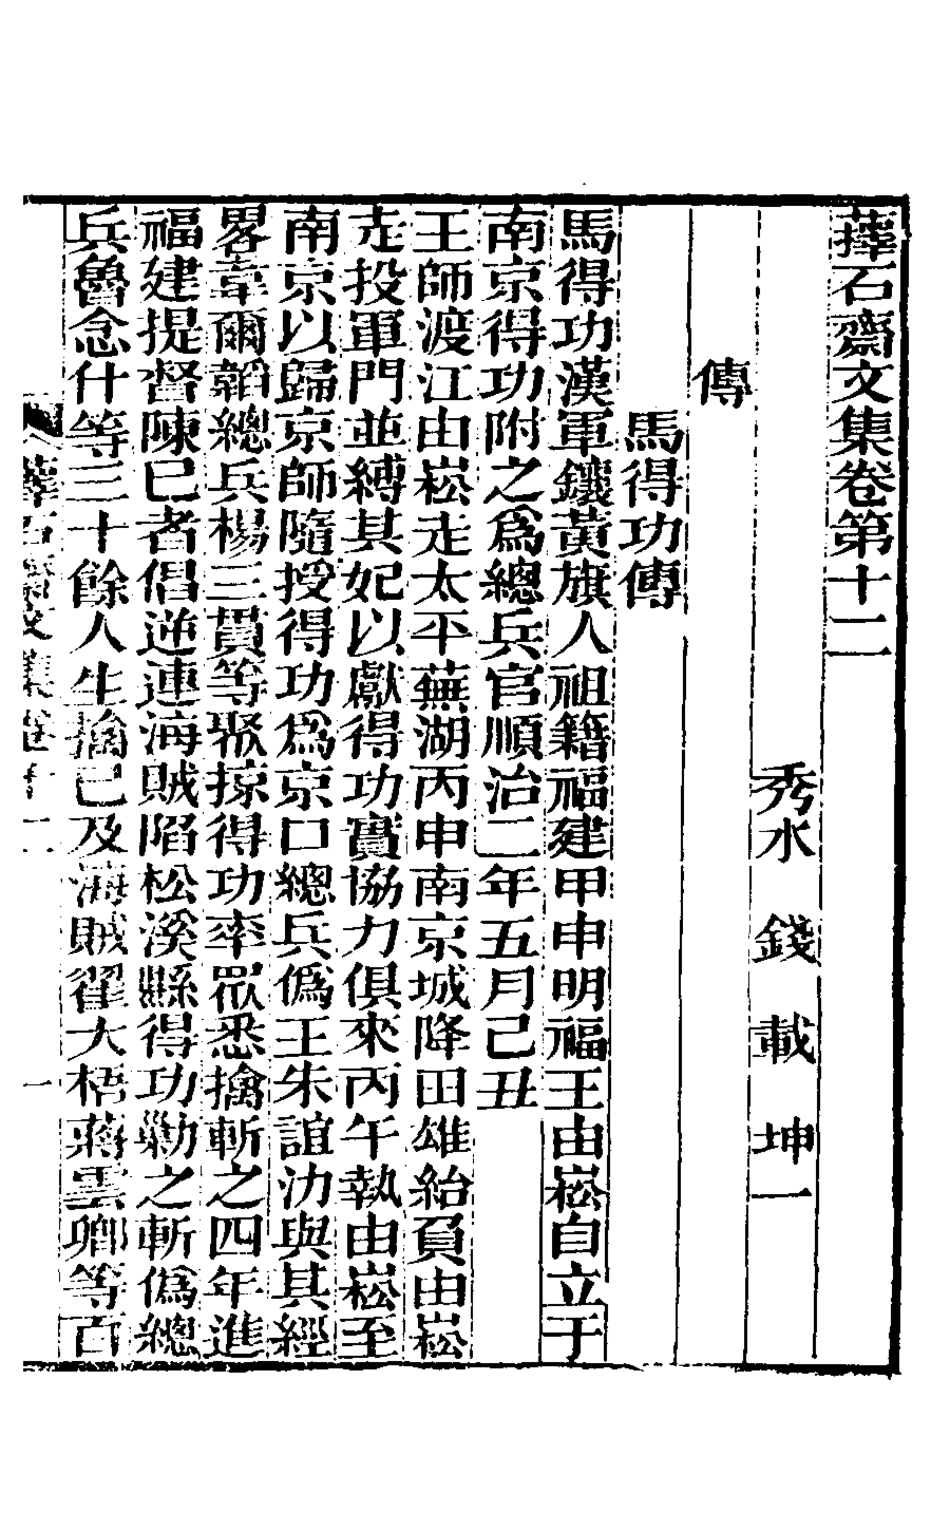 蘀石齋文集卷第十二
秀水 錢載 坤一
傳
馬得功傳
馬得功漢軍鑲黃旗人祖籍福建甲申明福王由崧自立于
南京得功附之爲總兵官順治二年五月己丑
王師渡江由崧走太平蕪湖丙申南京城降田雄紿負由崧
走投軍門並縛其妃以獻得功實協力俱來丙午執由崧至
南京以歸京師隨授得功爲京口總兵僞王朱誼泐與其經
畧韋爾韜總兵楊三貫等聚掠得功率眾悉擒斬之四年進
福建提督陳巳者倡逆連海賊陷松溪縣得功勦之斬僞總
兵魯念什等三十餘人生擒巳及海賊翟大梧蔣雲卿等百
蘀石齋文集卷第十二 一